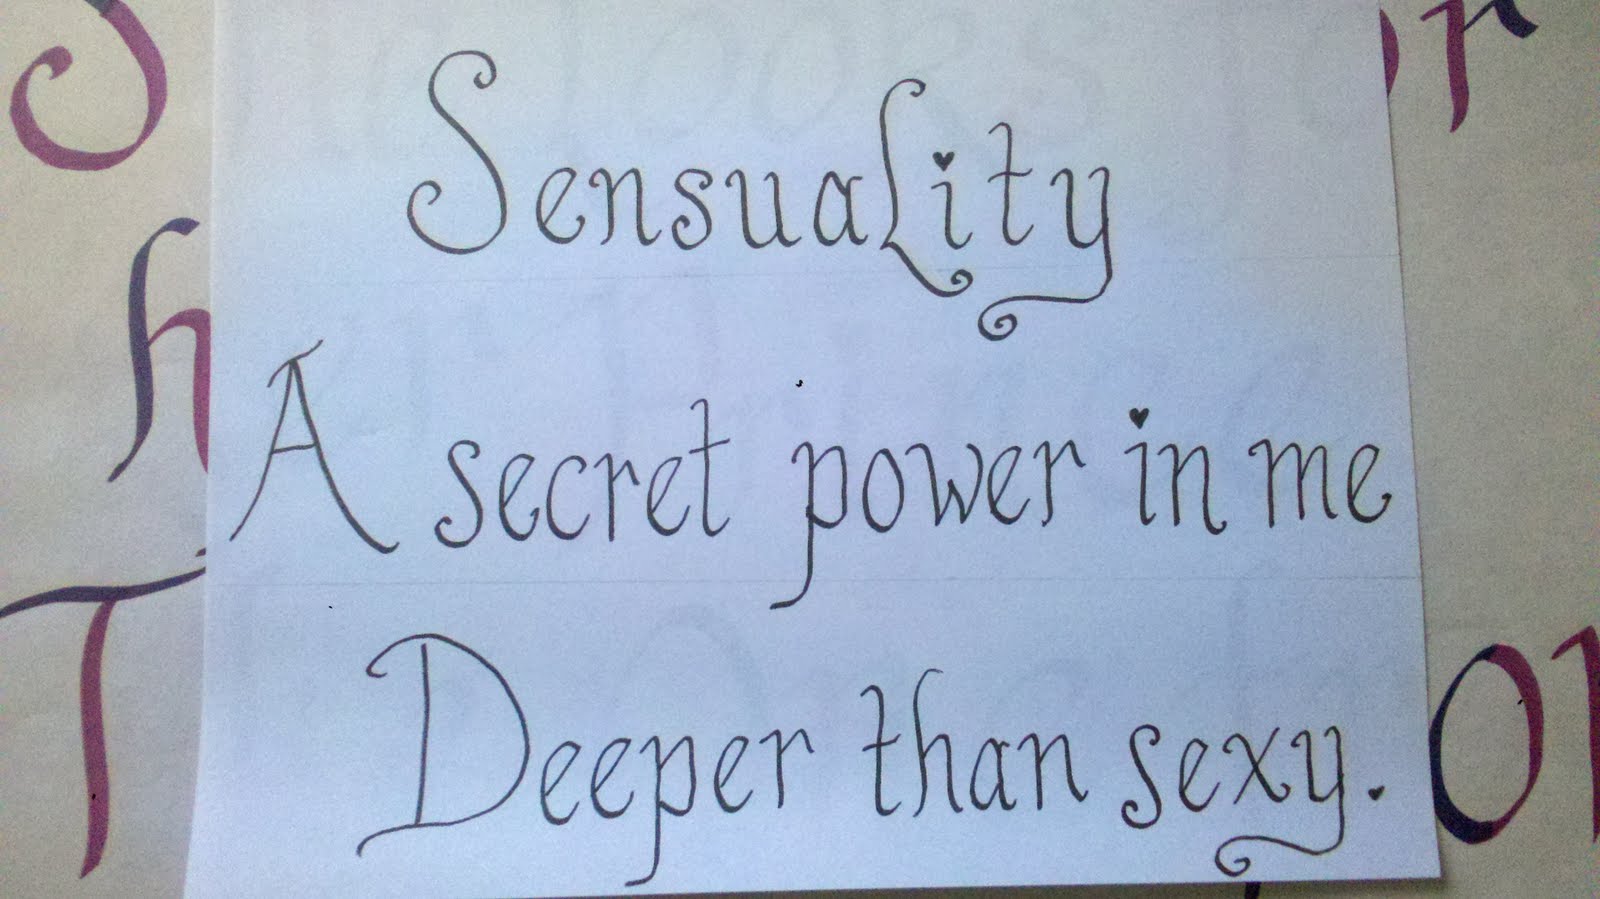 Sensuality
A secret power in me
Deeper than sexy.